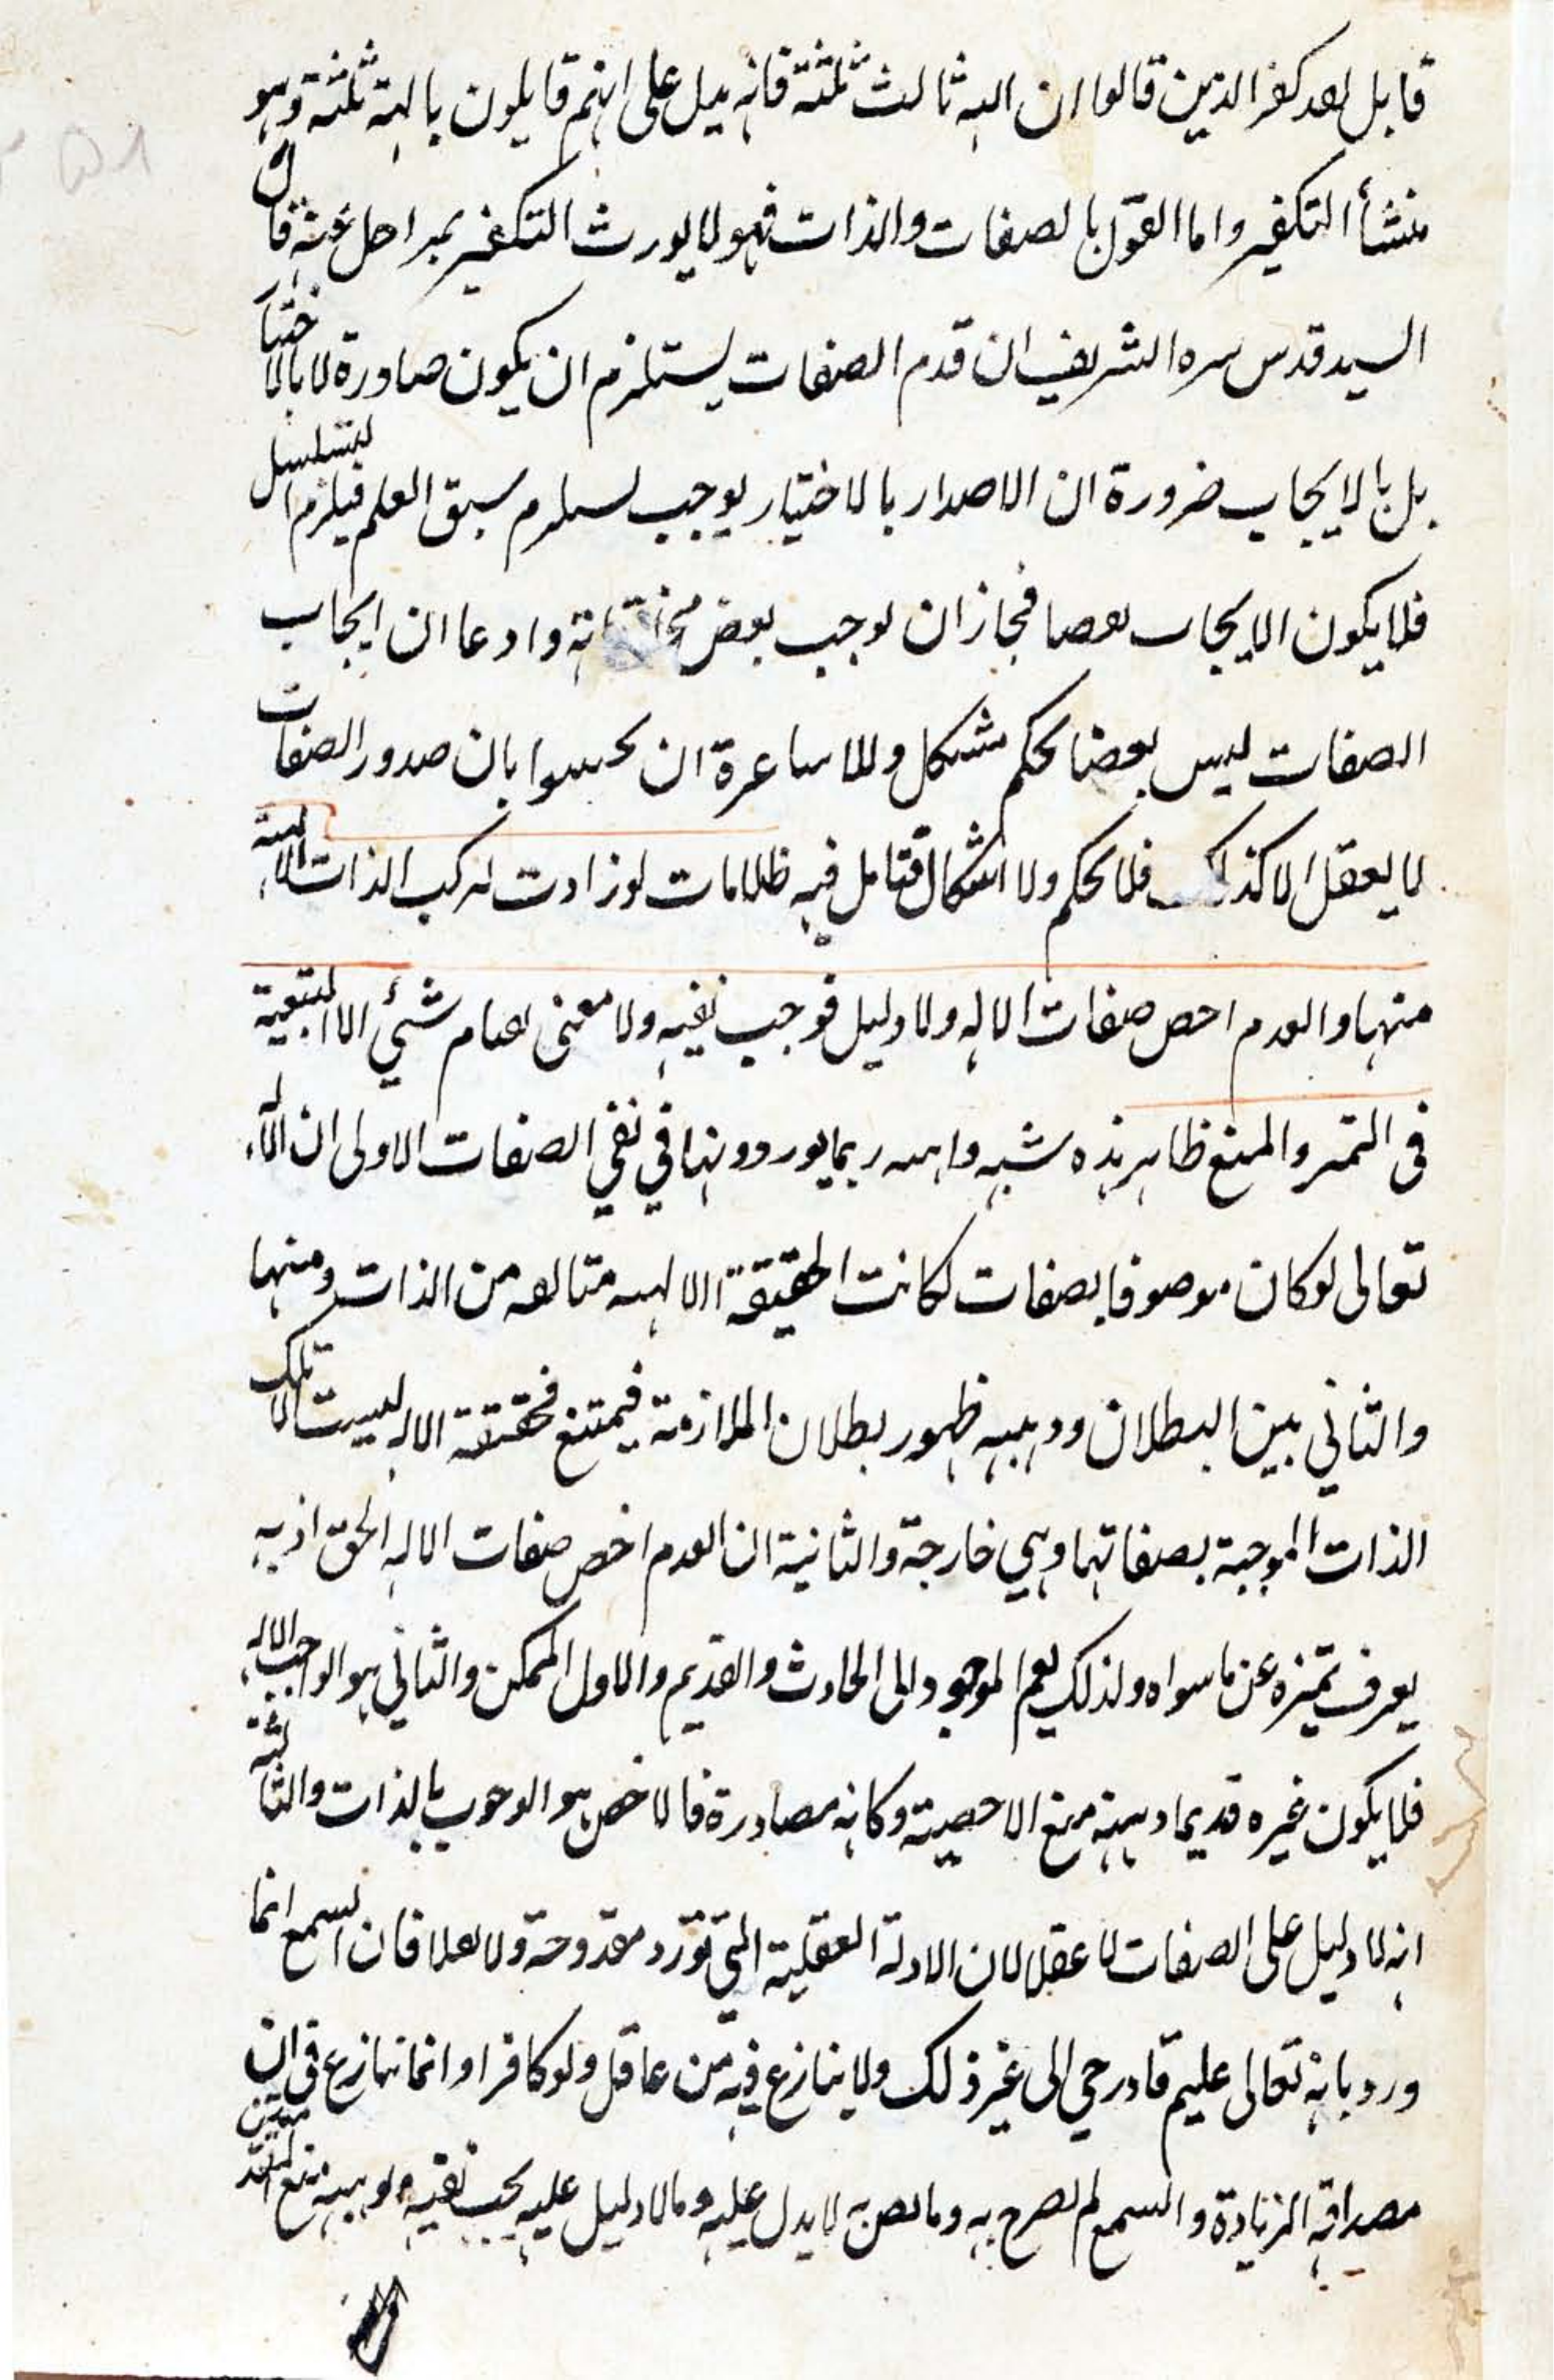 قايل لقد كفر الذين قالوا ان الله ثالث ثلثة فانه يدل على انهم قايلون بالهة ثلثة وهو
منشأ التكفير واما القول بالصفات والذات فهو لا يورث التكفير بمراحل عنه قال
السيد قدس سره الشريف ان قدم الصفات يستلزم ان يكون صادرة لا بالاختيار
بل بالايجاب ضرورة ان الاصدار بالاختيار يوجب يستلزم سبق العلم فيلزم التسلسل
فلا يكون الايجاب نقصا فجاز ان يوجب بعض وادعا ان ايجاب
الصفات ليس نقصا تحكم مشكل وللاشاعرة ان يجيبوا بان صدور الصفات
لا يعقل الا كذلك فلا تحكم ولا اشكال فتامل فيه ظلامات لو زادت لتركب الذات الالهية
منها والقدم اخص صفات الاله ولا دليل فوجب نفيه ولا معنى لقيام شئي الا التبعية
في التميز والمنع ظاهر هذه شبه واهية ربما يوردونها في نفي الصفات الاولى ان الله
تعالى لو كان موصوفا بصفات لكانت الحقيقة الالهية متالفة من الذات ومنها
والثاني بين البطلان وجهه ظهور بطلان الملازمة فيمتنع فحقيقة الاله ليست الا تلك
الذات الموجبة بصفاتها وهي خارجة والثانية ان القدم اخص صفات الاله الحق اذ به
يعرف تميزه عن ما سواه ولذلك يعم الموجود الى الحادث والقديم والاول الممكن والثاني هو الواجب الاله
فلا يكون غيره قديما وجهه منع الاخصية وكانه مصادرة فالاخص هو الوجوب بالذات والثالثة
انه لا دليل على الصفات لا عقلا لان الادلة العقلية التي تورد مقدوحة ولا نقلا فان السمع انما
ورد بانه تعالى عليم قادر حي الى غير ذلك ولا ينازع فيه من عاقل ولو كافرا وانما ننازع في ان
مصداقه الزيادة والسمع لم يصرح به وما نص به لا يدل عليه وما لا دليل عليه يجب نفيه وجهه منع